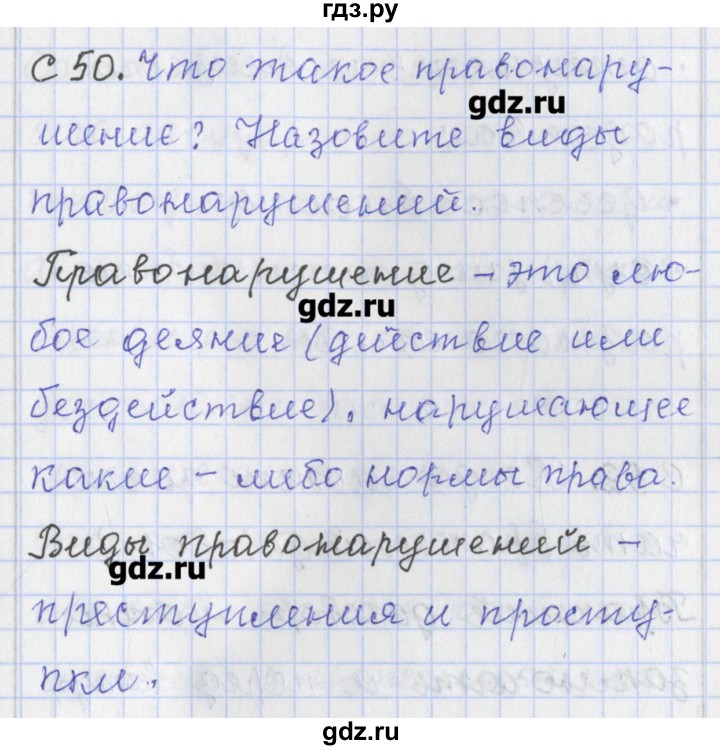 гдз.ру
С 50. Что такое правонару-
gdz.ru
шение? Назовите виды
правонарушений.
Правонарушение - это лю-
gdz.ru
бое деяние (действие или
бездействие), нарушающее
какие - либо нормы права.
Виды правонарушений -
gdz.ru
преступления и просту-
пки.
gdz.ru